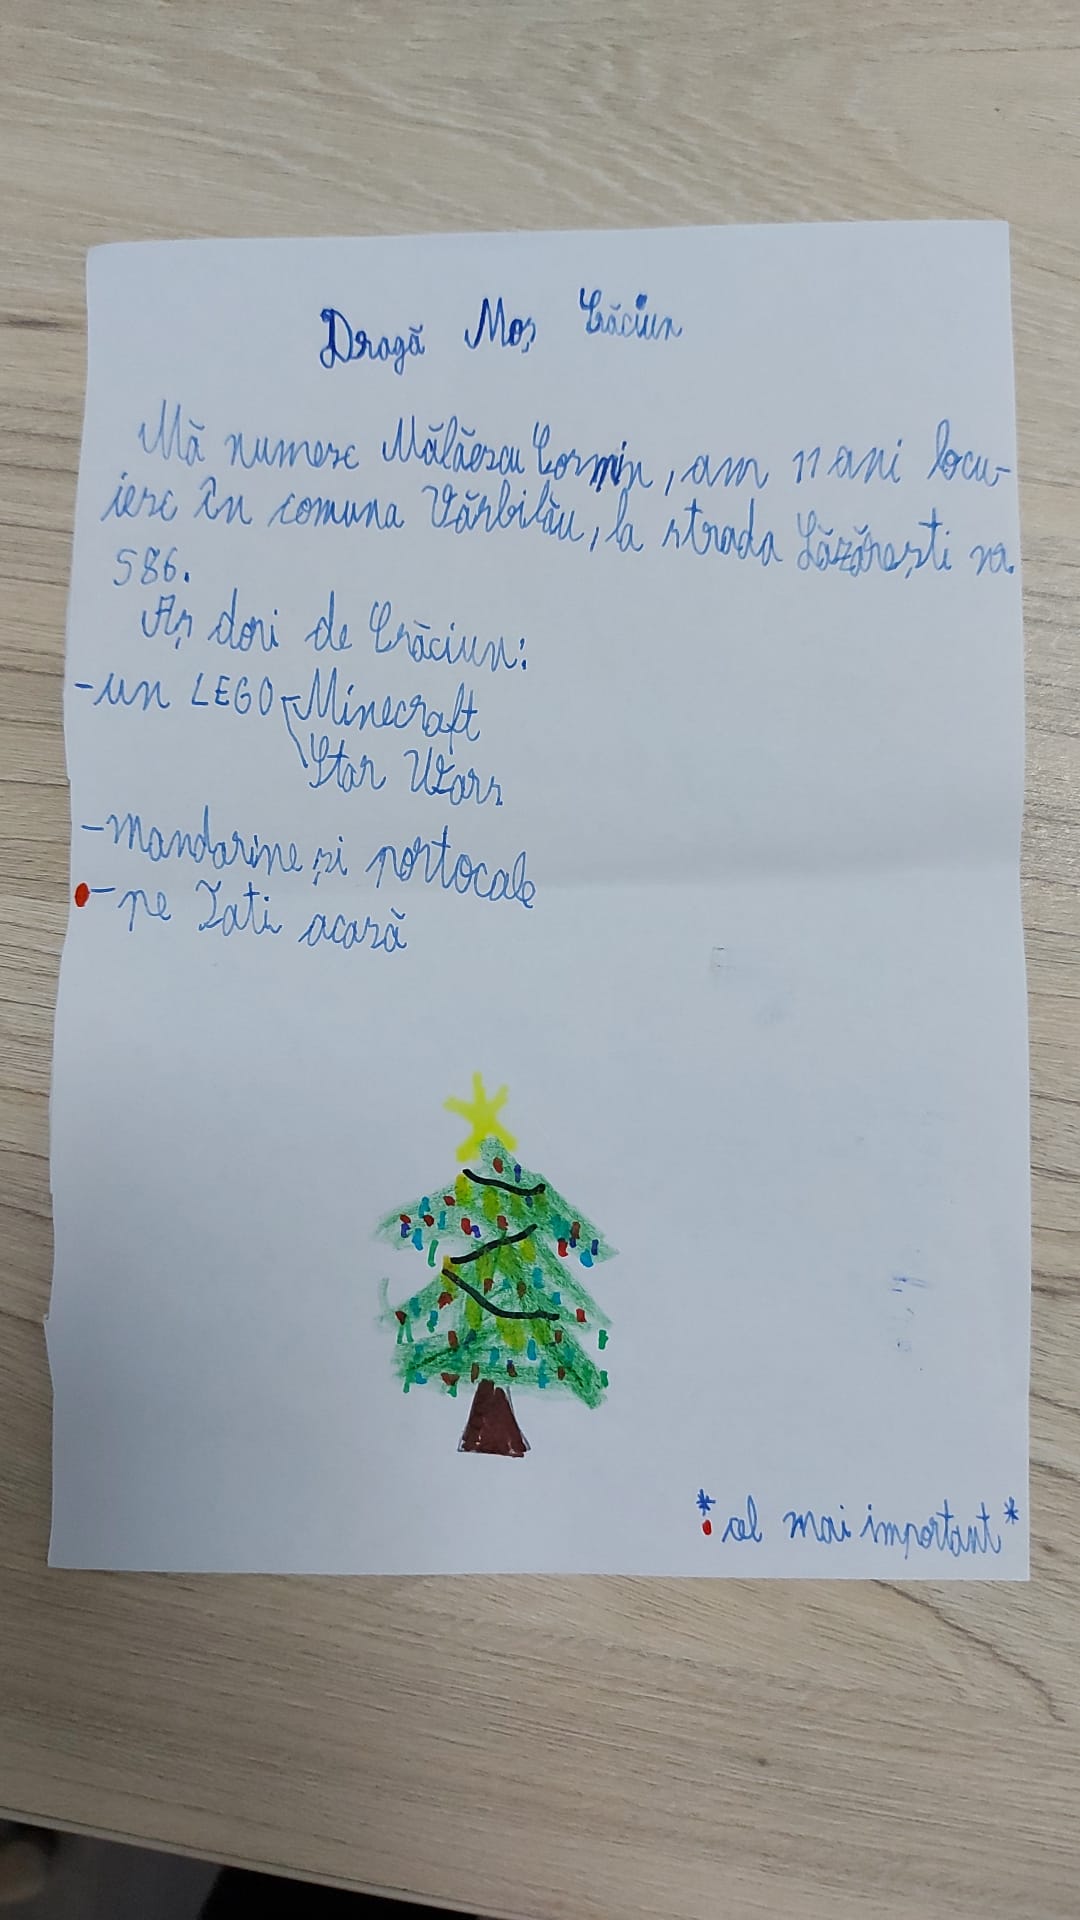 Dragă Moș Crăciun
Mă numesc Mălăescu Cosmin, am 11 ani locu-
iesc în comuna Vărbilău, la strada Lăzărești nr.
586.
Aș dori de Crăciun:
-un LEGO-Minecraft
\Star Wars
-mandarine și portocale
-pe Tati acasă
*cel mai important*